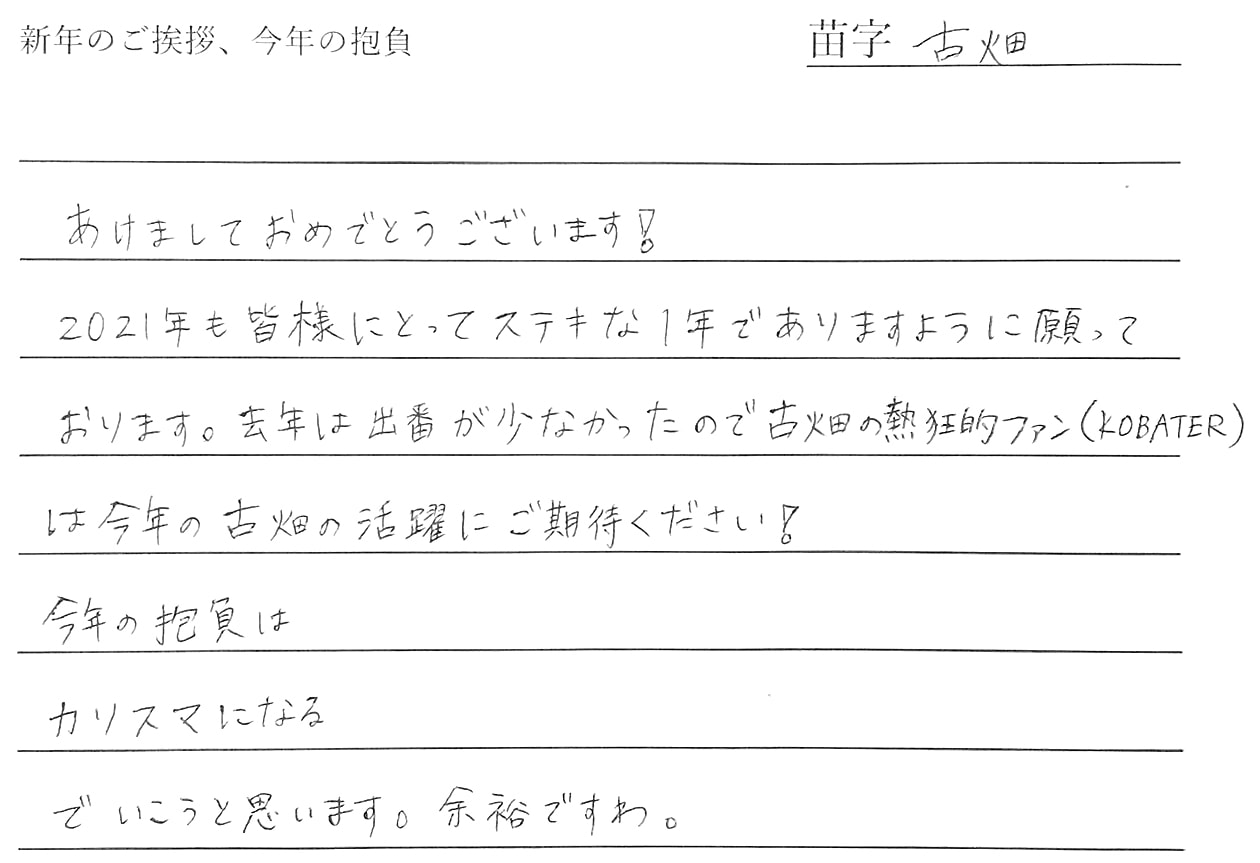 新年のご挨拶、今年の抱負
苗字 古畑
あけましておめでとうございます!
2021年も皆様にとってステキな1年でありますように願って
おります。去年は出番が少なかったので古畑の熱狂的ファン(KOBATER)
は今年の古畑の活躍にご期待ください!
今年の抱負は
カリスマになる
でいこうと思います。余裕ですわ。